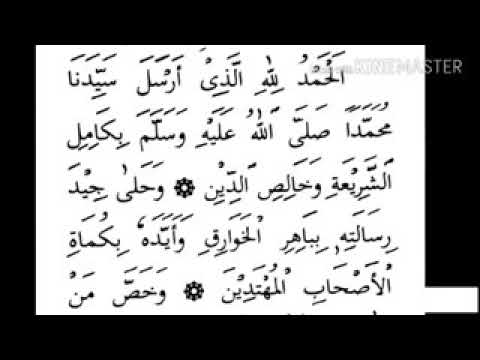 اَلْحَمْدُ لِلّٰهِ الَّذِيْ أَرْسَلَ سَيِّدَنَا
KINEMASTER
مُحَمَّدًا صَلَّى اللّٰهُ عَلَيْهِ وَسَلَّمَ بِكَامِلِ
الشَّرِيْعَةِ وَخَالِصِ الدِّيْنِ ۞ وَحَلىٰ جِيْدَ
رِسَالَتِهِ بِبَاهِرِ الْخَوَارِقِ وَأَيَّدَهُ بِكُمَاةِ
الْأَصْحَابِ الْمُهْتَدِيْنَ ۞ وَخَصَّ مَنْ